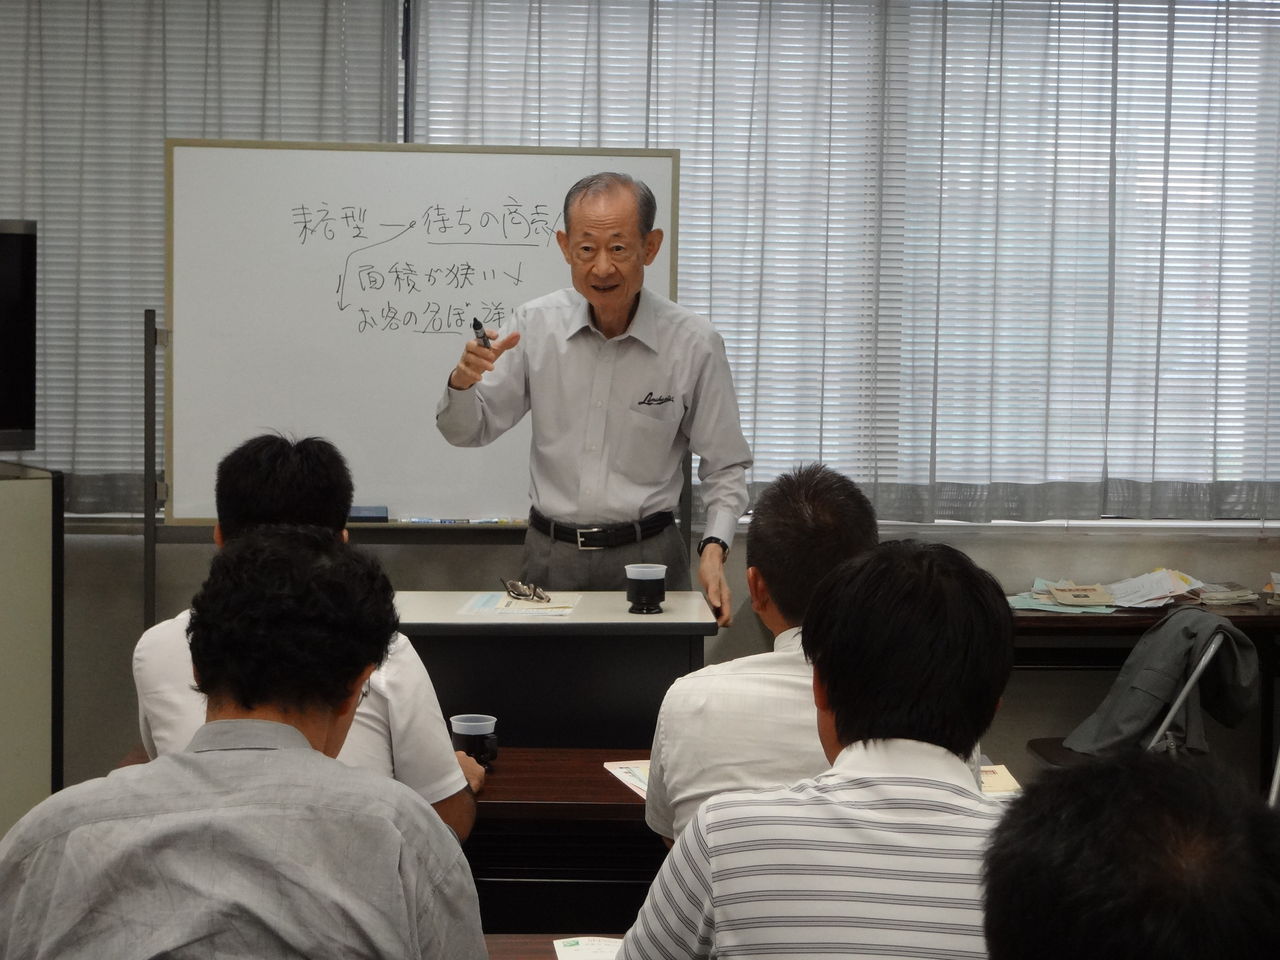 来店型 → 待ちの商売
面積が狭い
お客の名ぼ